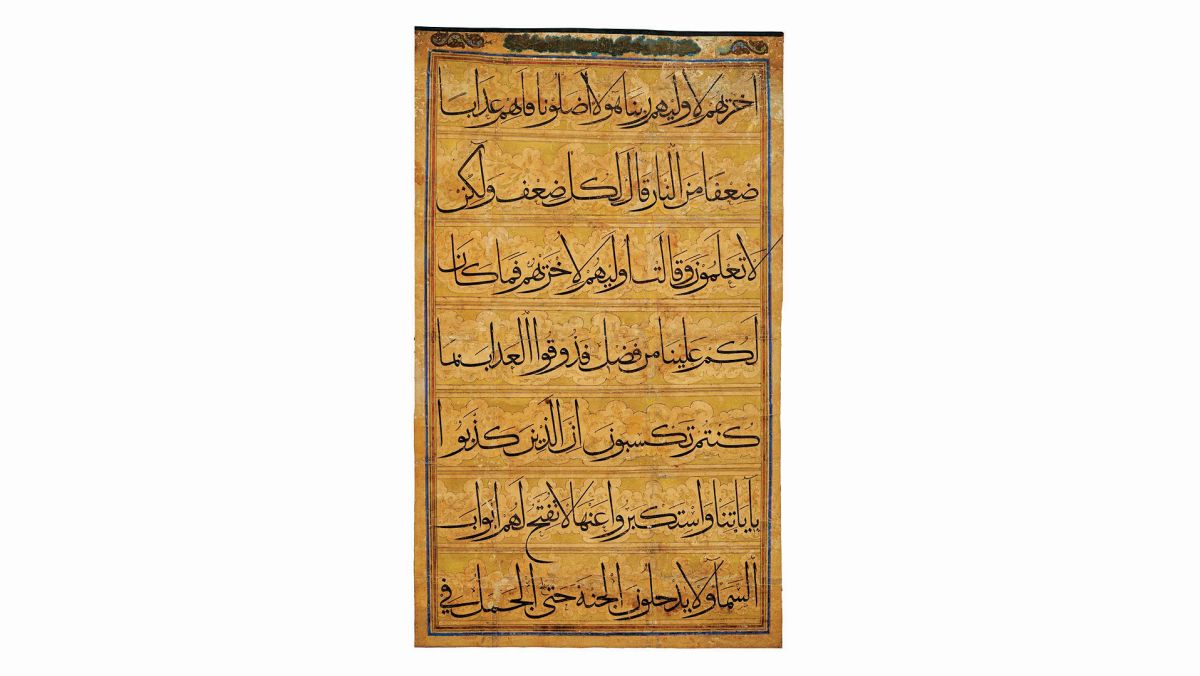 اخرتهم لاوليهم ربنا هولا اضلونا فاتهم عذابا
ضعفا من النار قال لكل ضعف ولكن
لا تعلمون وقالت اوليهم لاخرتهم فما كان
لكم علينا من فضل فذوقوا العذاب بما
كنتم تكسبون ان الذين كذبوا
باياتنا واستكبروا عنها لا تفتح لهم ابواب
السمآ ولا يدخلون الجنة حتى الجمل في